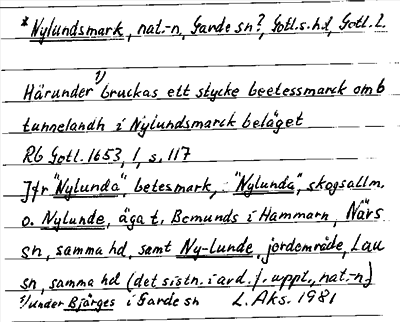 *Nylundsmark, nat.-n, Garde sn?, Gotl. s. hd, Gotl. l.
Härunder 1) bruckas ett stycke beetessmarck om 6
tunnelandh i Nylundsmarck beläget
Rb Gotl. 1653, 1, s. 117
Jfr "Nylunda", betesmark, "Nylunda", skogsallm.
o. Nylunde, äga t. Bomunds i Hammarn, När s
sn, samma hd, samt Ny-lunde, jordområde, Lau
sn, samma hd (det sistn. i avd. f. uppt., nat.-n.)
1) under Bjärges i Garde sn L. Aks. 1981